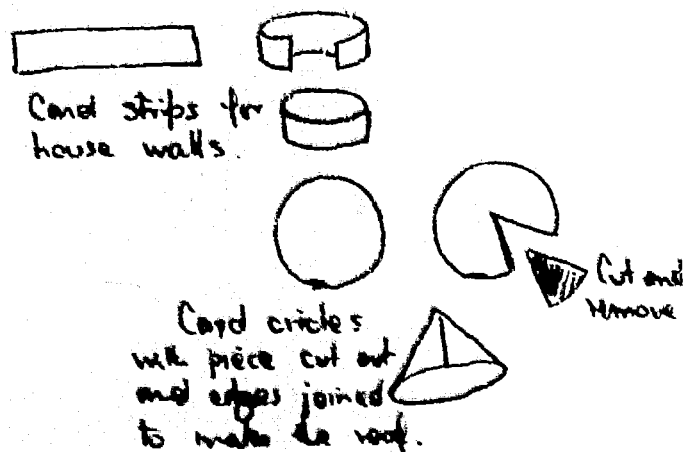 Card strips for
house walls.
Cut and
remove
Card circles
with piece cut out
and edges joined
to make the roof.